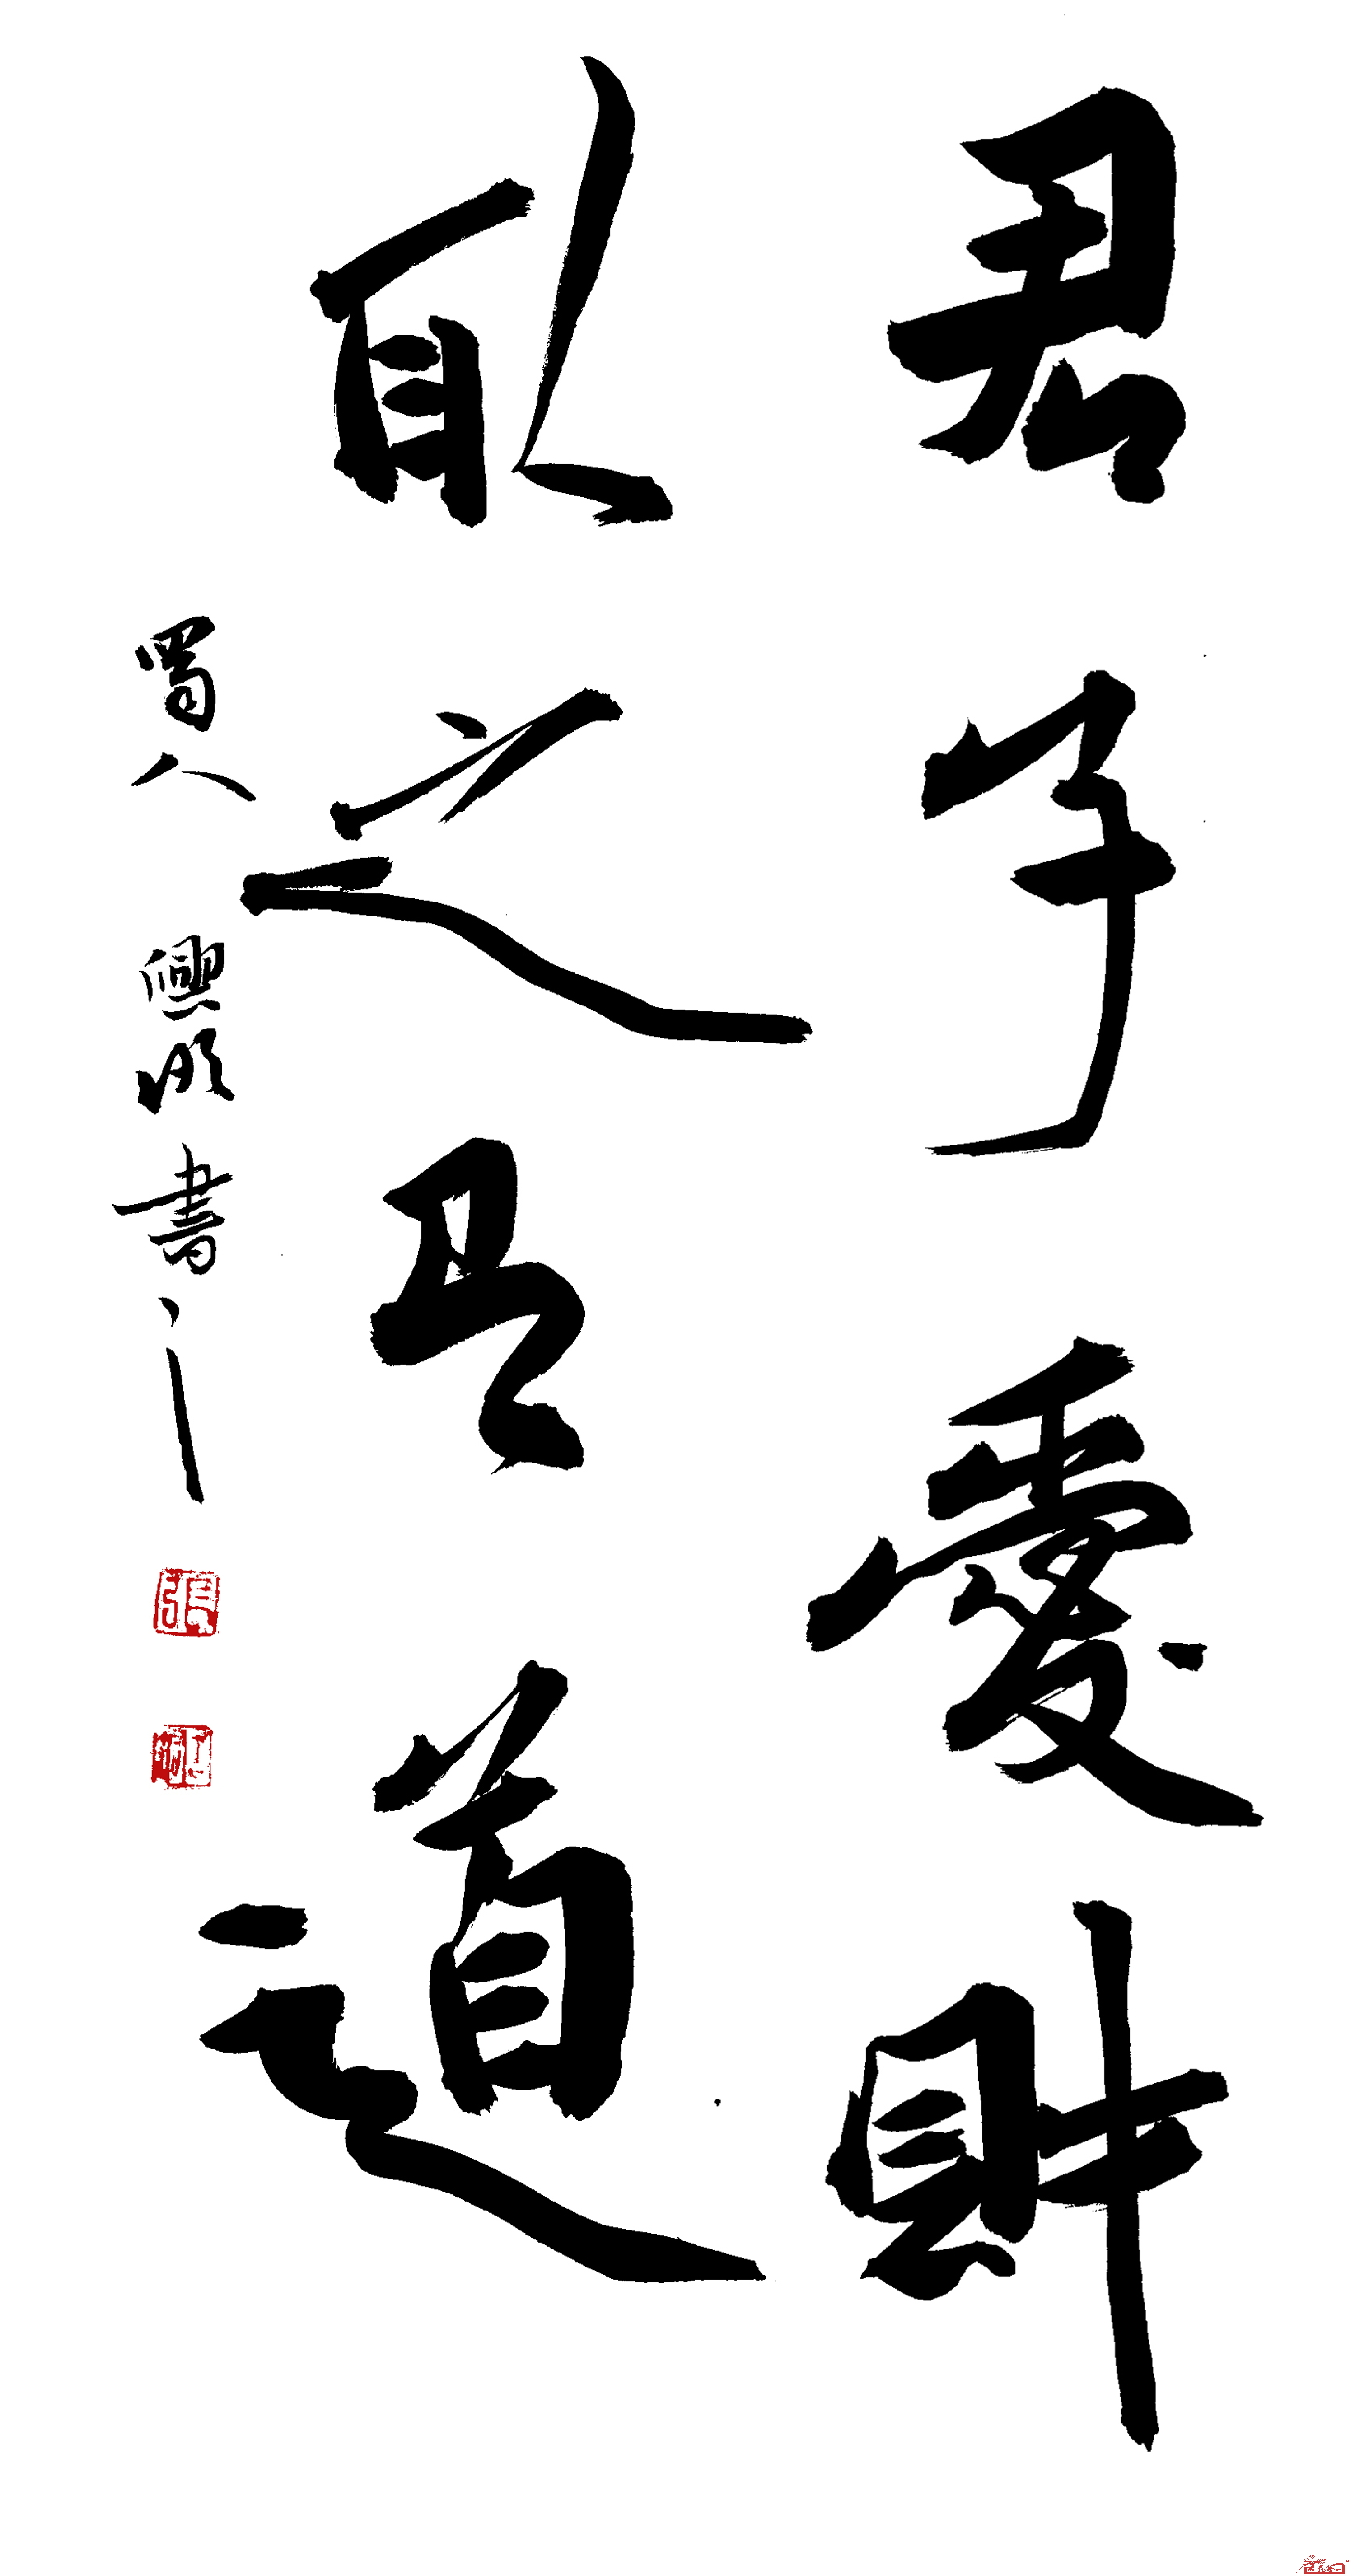 君子愛財
取之有道
蜀人興明書
張